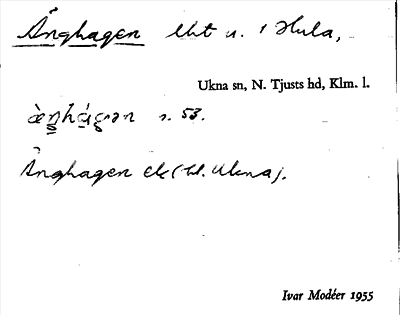 Änghagen lht u. 1 Hula,
Ukna sn, N. Tjusts hd, Klm. l.
s. 53.
Änghagen ek (bl. Ukna).
Ivar Modéer 1955